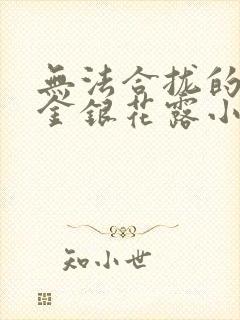 無法合拢的
金銀花露小
知小世